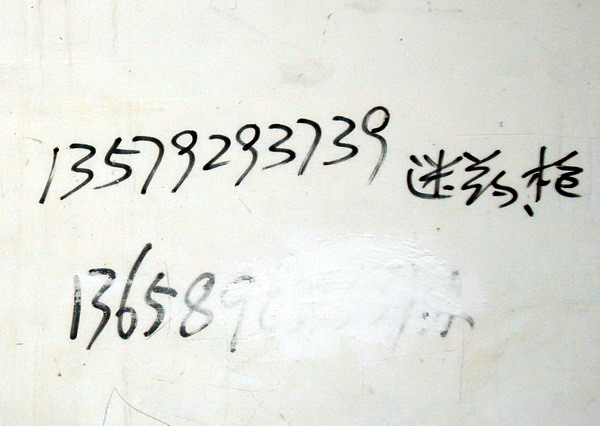 13579293739 迷药、枪
136589